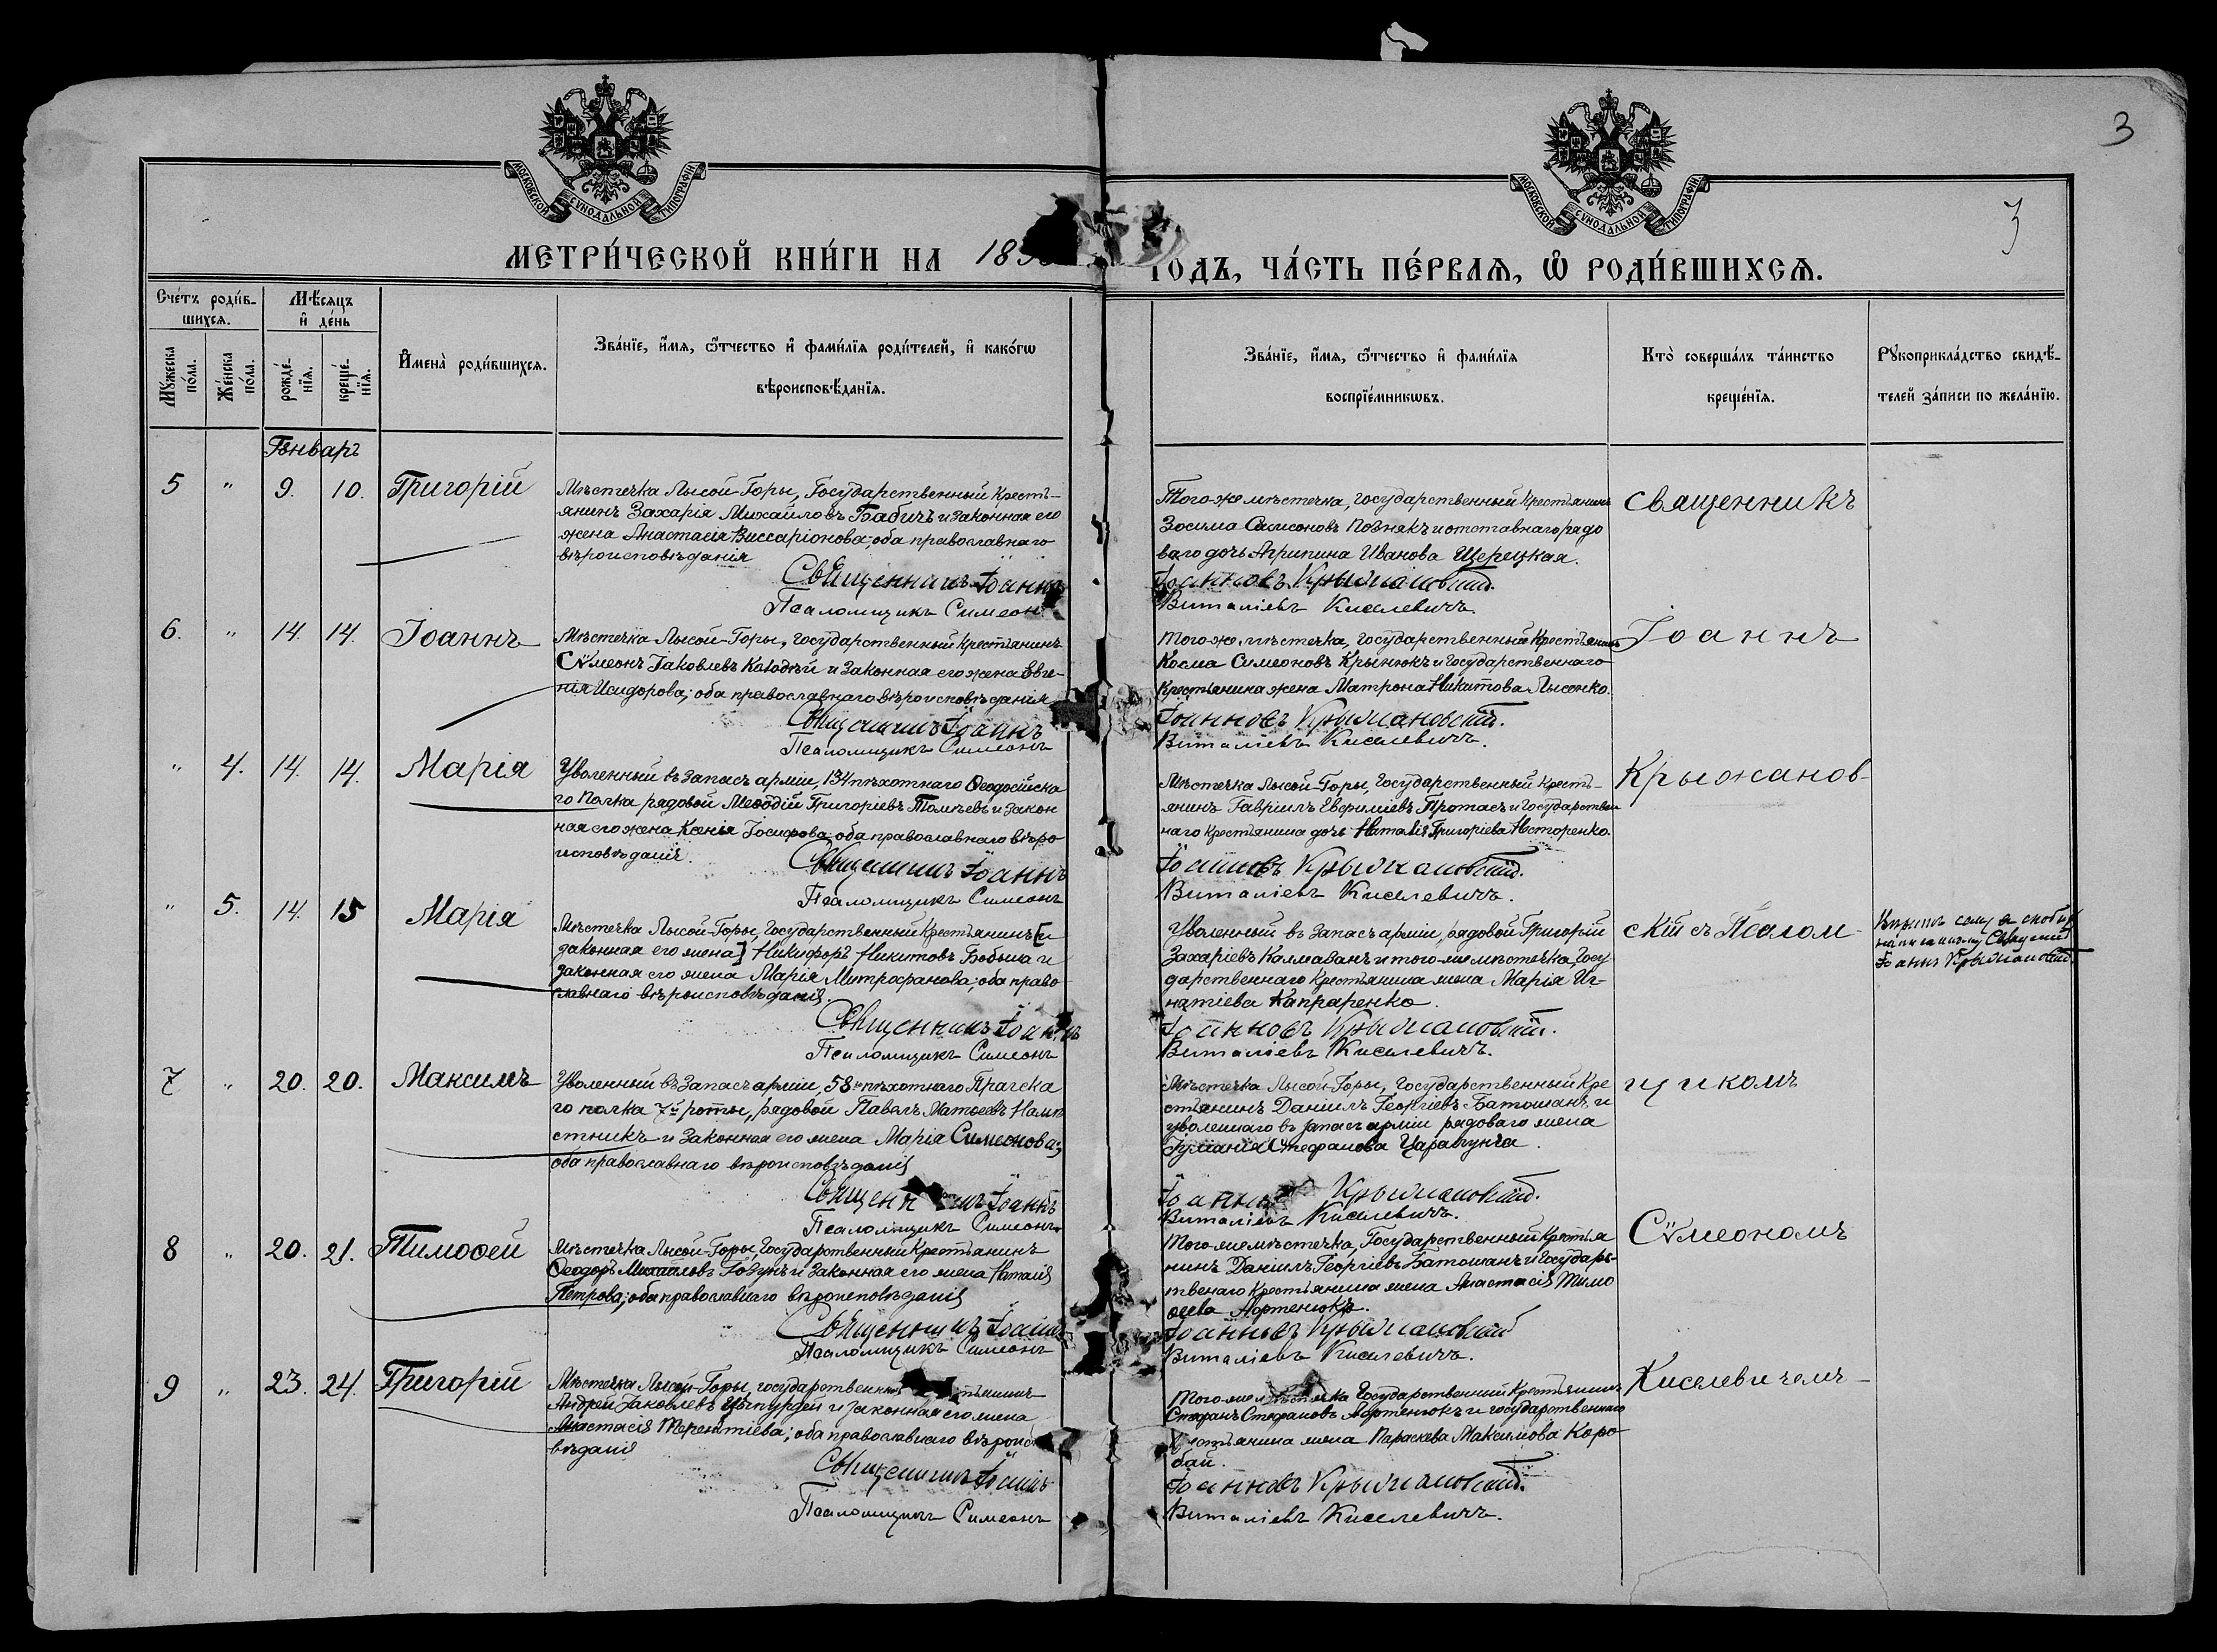 3
МОСКОВСКОЙ СѴНОДАЛЬНОЙ ТИПОГРАФІИ.
МОСКОВСКОЙ СѴНОДАЛЬНОЙ ТИПОГРАФІИ.
3
МЕТРИ́ЧЕСКОЙ КНИ́ГИ НА 18
ГОДЪ, ЧА́СТЬ ПЕ́РВАЯ, Ѡ РОДИ́ВШИХСѦ.
Сче́тъ роди́в-
шихсѧ.
Мѣ́сѧцъ
и҆ де́нь
Мꙋ́жеска по́ла.
Же́нска по́ла.
рожде́-нїѧ.
креще́-нїѧ.
И҆мена̀ роди́вшихсѧ.
Зва́нїе, и҆́мѧ, ѻ҆́тчество и҆ фами́лїѧ роди́телей, и҆ како́гѡ
вѣроисповѣ́данїѧ.
Зва́нїе, и҆́мѧ, ѻ҆́тчество и҆ фами́лїѧ
воспрїе́мникѡвъ.
Кто̀ соверша́лъ та́инство
креще́нїѧ.
Рꙋкоприкла́дство свидѣ́-
телей за́писи по жела́нїю.
Январь
5 " 9. 10. Григорій
Мѣстечка Лысой-Горы, Государственный Кресть-
янинъ Захарія Михайловъ Бабичъ и законная его
жена Анастасія Виссаріонова; оба православнаго
вѣроисповѣданія
Священникъ Іоаннъ
Псаломщикъ Симеонъ
Того-же мѣстечка, государственный Крестьянинъ
Зосима Симеоновъ Познякъ и отставнаго рядо
ваго дочь Агрипина Иванова Щерецкая.
Іоанновъ Крыжановскій.
Виталіевъ Киселевичъ.
священникъ
6. " 14. 14. Іоаннъ
Мѣстечка Лысой-Горы, государственный Крестьянинъ
Сѵмеонъ Іаковлевъ Колодѣй и законная его жена Евге-
нія Исидорова; оба православнаго вѣроисповѣданія
Священникъ Іоаннъ
Псаломщикъ Симеонъ
того-же мѣстечка, государственный Крестьянинъ
Косма Симеоновъ Крынюкъ и государственнаго
Крестьянина жена Матрона Никитова Лысенко.
Іоанновъ Крыжановскій.
Виталіевъ Киселевичъ.
Іоаннъ
" 4. 14. 14. Марія
Уволенный въ запасъ арміи, 134 пѣхотнаго Ѳеодосійска
го Полка рядовой Меѳодій Григоріевъ Томлевъ и закон
ная его жена Ксенія Іосифова; оба православнаго вѣро
исповѣданія.
Священникъ Іоаннъ
Псаломщикъ Симеонъ
Мѣстечка Лысой-Горы, государственный Кресть-
янинъ Гавріилъ Евфиміевъ Протасъ и государствен
наго Крестьянина дочь Наталія Григоріева Несторенко.
Іоанновъ Крыжановскій.
Виталіевъ Киселевичъ.
Крыжанов-
" 5. 14. 15 Марія
Мѣстечка Лысой-Горы, Государственный Крестьянинъ [и
законная его жена] Никифоръ Никитовъ Бобыша и
законная его жена Марія Митрофанова; оба право
славнаго вѣроисповѣданія.
Священникъ Іоаннъ
Псаломщикъ Симеонъ
Уволенный въ запасъ арміи, рядовой Григорій
Захаріевъ Калмаванъ и того-же мѣстечка, Госу
дарственнаго Крестьянина жена Марія Иг-
натіева Капраренко.
Іоанновъ Крыжановскій.
Виталіевъ Киселевичъ.
скій съ Псалом-
написанному Священникъ
Іоаннъ Крыжановскій.
7 " 20. 20. Максимъ
Уволенный въ запасъ арміи, 58го пѣхотнаго Прагска
го полка 7й роты, рядовой Павелъ Матѳеевъ Намѣ
стникъ и законная его жена Марія Симеонова;
оба православнаго вѣроисповѣданія
Священникъ Іоаннъ
Псаломщикъ Симеонъ
Мѣстечка Лысой-Горы, государственный Кре
стьянинъ Даніилъ Георгіевъ Батошанъ и
уволеннаго въ запасъ арміи рядоваго жена
Іуліанія Стефанова Царапунга.
Іоаннъ Крыжановскій.
Виталіевъ Киселевичъ.
щикомъ
8 " 20. 21. Тимоѳей
Мѣстечка Лысой-Горы, Государственный Крестьянинъ
Ѳеодоръ Михайловъ Гозунъ и законная его жена Наталія
Петрова; оба православнаго вѣроисповѣданія
Священникъ Іоаннъ
Псаломщикъ Симеонъ
Того-же мѣстечка, Государственный Крестья
нинъ Даніилъ Георгіевъ Батошанъ и Государс-
твенаго Крестьянина жена Анастасія Тимо
ѳеева Артенюкъ.
Іоанновъ Крыжановскій
Виталіевъ Киселевичъ.
Сѵмеономъ
9 " 23. 24. Григорій
Мѣстечка Лысой-Горы, государственный
Андрей Іаковлевъ Цыпурдей и законная его жена
Анастасія Терентіева; оба православнаго вѣроис
вѣданія
Священникъ Іоаннъ
Псаломщикъ Симеонъ
Того-же мѣстечка Государственный Крестьянинъ
Стефанъ Стефановъ Артенюкъ и государственнаго
Крестьянина жена Параскева Максимова Коро
бай.
Іоанновъ Крыжановскій.
Виталіевъ Киселевичъ.
Киселевичемъ